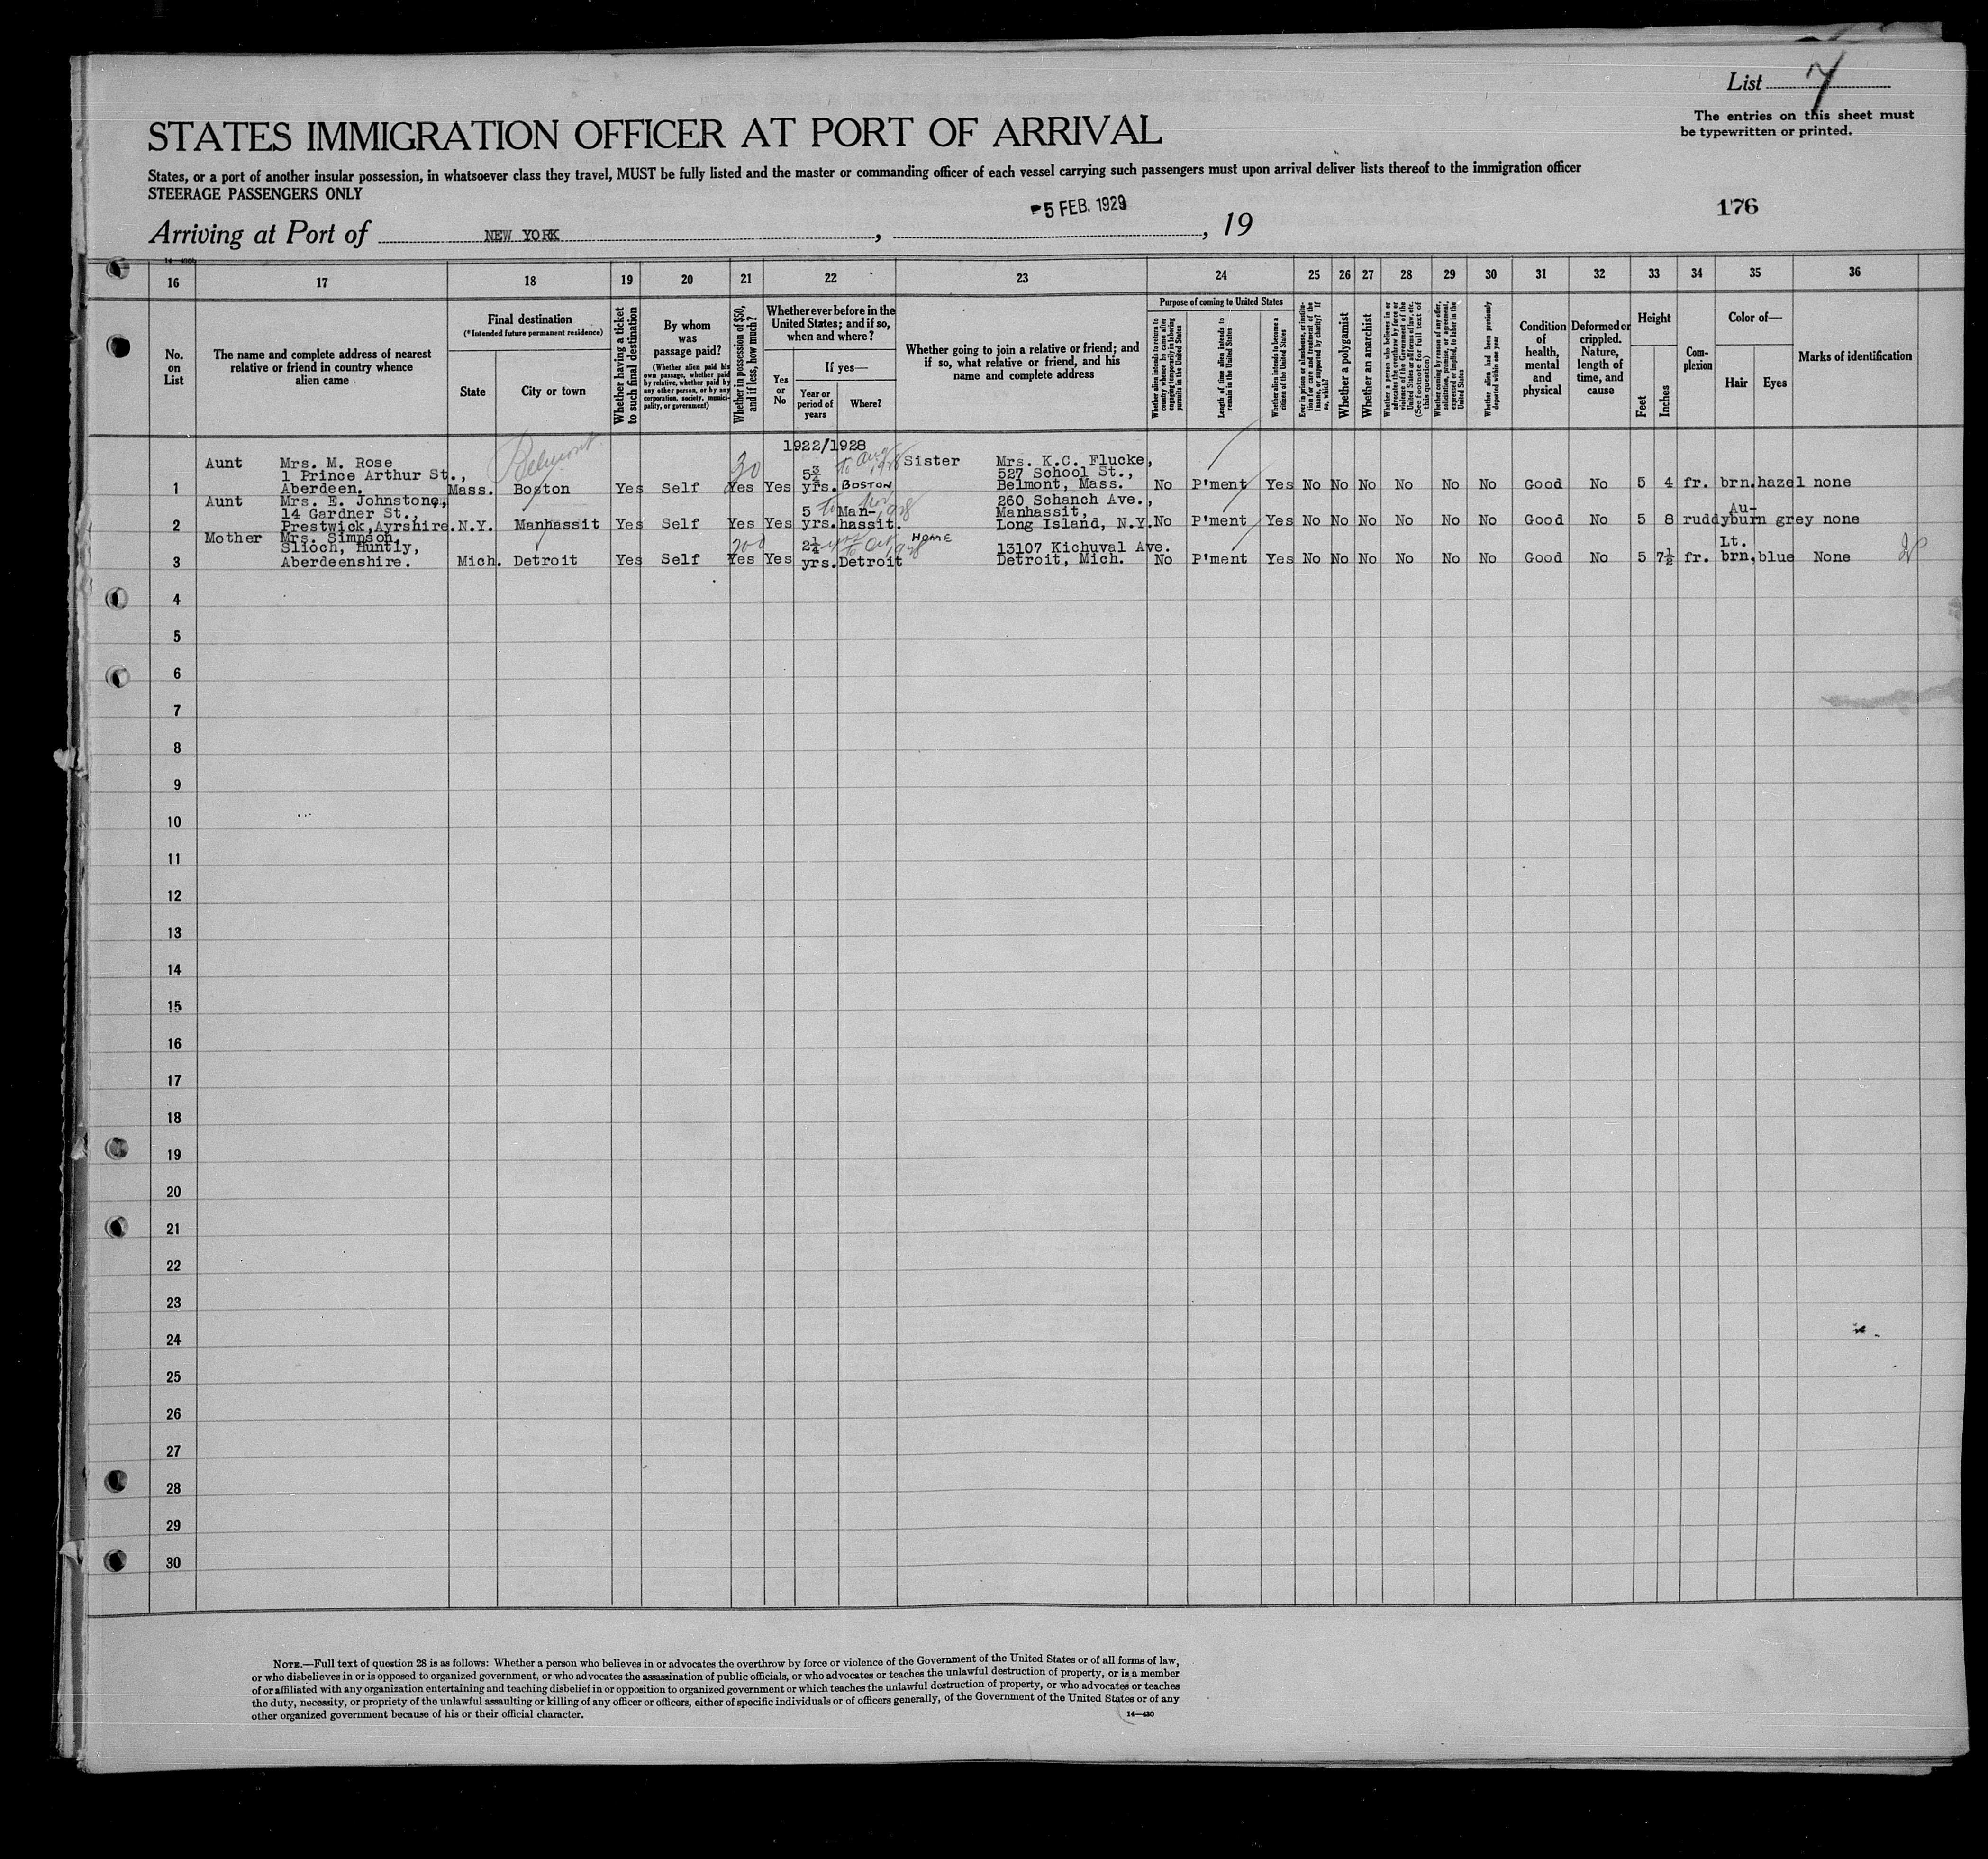 List 7
The entries on this sheet must
be typewritten or printed.
STATES IMMIGRATION OFFICER AT PORT OF ARRIVAL
States, or a port of another insular possession, in whatsoever class they travel, MUST be fully listed and the master or commanding officer of each vessel carrying such passengers must upon arrival deliver lists thereof to the immigration officer
STEERAGE PASSENGERS ONLY
5 FEB. 1929
176
Arriving at Port of NEW YORK, , 19
16 17 18 19 20 21 22 23 24 25 26 27 28 29 30 31 32 33 34 35 36
No.
on
List
The name and complete address of nearest
relative or friend in country whence
alien came
Final destination
(*Intended future permanent residence)
State
City or town
Whether having a ticket
to such final destination
By whom
was
passage paid?
(Whether alien paid his
own passage, whether paid
by relative, whether paid by
any other person, or by any
corporation, society, munici-
pality, or government)
Whether in possession of $50,
and if less, how much?
Whether ever before in the
United States; and if so,
when and where?
Yes
or
No
If yes—
Year or
period of
years
Where?
Whether going to join a relative or friend; and
if so, what relative or friend, and his
name and complete address
Purpose of coming to United States
Whether alien intends to return to
country whence he came after
engaging temporarily in laboring
pursuits in the United States
Length of time alien intends to
remain in the United States
Whether alien intends to become a
citizen of the United States
Ever in prison or almshouse, or institu-
tion for care and treatment of the
insane, or supported by charity? If
so, which?
Whether a polygamist
Whether an anarchist
Whether a person who believes in or
advocates the overthrow by force or
violence of the Government of the
United States or all forms of law, etc.
(See footnote for full text of
this question)
Whether coming by reason of any offer,
solicitation, promise, or agreement,
expressed or implied, to labor in the
United States
Whether alien had been previously
deported within one year
Condition
of
health,
mental
and
physical
Deformed or
crippled.
Nature,
length of
time, and
cause
Height
Feet
Inches
Com-
plexion
Color of—
Hair
Eyes
Marks of identification
Belmont
1922/1928
Aunt Mrs. M. Rose 30 5¾ to Aug 1928 Sister Mrs. K.C. Flucke,
1 Prince Arthur St., 527 School St.,
1 Aberdeen. Mass. Boston Yes Self Yes Yes yrs. BOSTON Belmont, Mass. No P'ment Yes No No No No No No Good No 5 4 fr. brn. hazel none
Aunt Mrs. E. Johnstone, 260 Schanch Ave.,
14 Gardner St., 5 to Nov 1928 Man- Manhassit, Au-
2 Prestwick,Ayrshire. N.Y. Manhassit Yes Self Yes Yes yrs. hassit. Long Island, N.Y. No P'ment Yes No No No No No No Good No 5 8 ruddy burn grey none
Mother Mrs. Simpson, HOME
Slioch, Huntly, 200 2¼ to Oct 1928 13107 Kichuval Ave. Lt.
3 Aberdeenshire. Mich. Detroit Yes Self Yes Yes yrs. Detroit Detroit, Mich. No P'ment Yes No No No No No No Good No 5 7½ fr. brn, blue None
4
5
6
7
8
9
10
11
12
13
14
15
16
17
18
19
20
21
22
23
24
25
26
27
28
29
30
NOTE.—Full text of question 28 is as follows: Whether a person who believes in or advocates the overthrow by force or violence of the Government of the United States or of all forms of law,
or who disbelieves in or is opposed to organized government, or who advocates the assassination of public officials, or who advocates or teaches the unlawful destruction of property, or is a member
of or affiliated with any organization entertaining and teaching disbelief in or opposition to organized government or which teaches the unlawful destruction of property, or who advocates or teaches
the duty, necessity, or propriety of the unlawful assaulting or killing of any officer or officers, either of specific individuals or of officers generally, of the Government of the United States or of any
other organized government because of his or their official character.
14—430